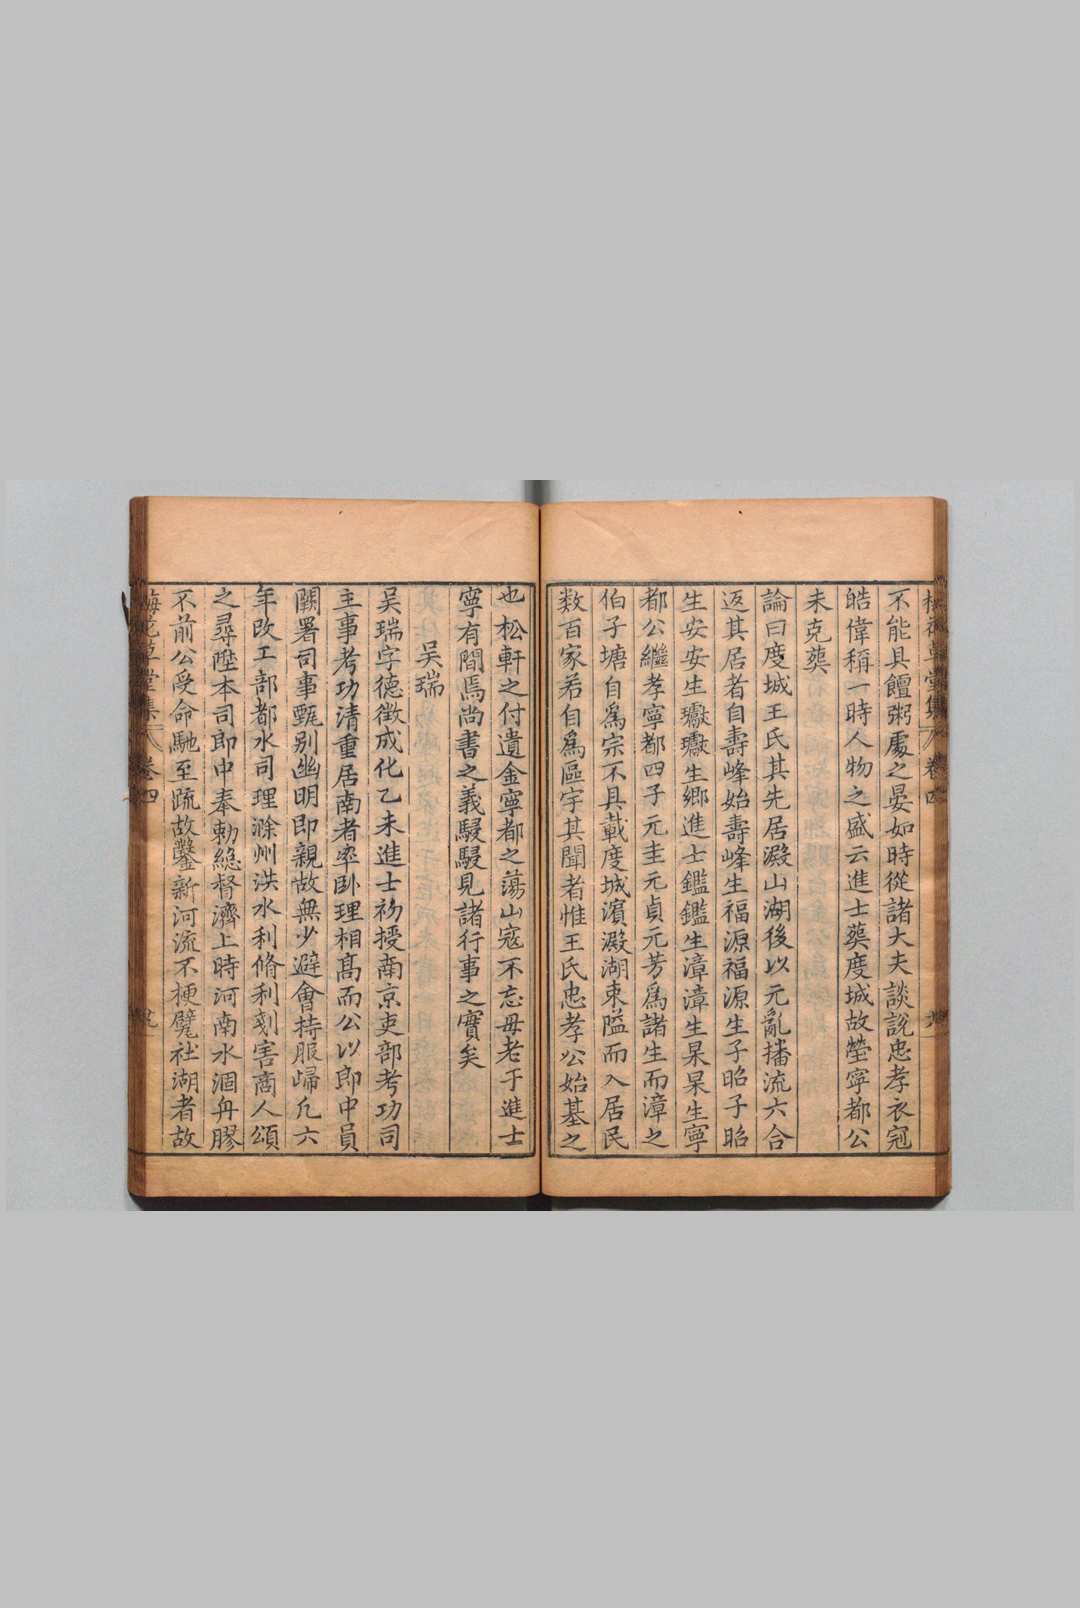 不能具饘粥處之晏如時從諸大夫談說忠孝衣冠
皓偉稱一時人物之盛云進士葬度城故塋寧都公
未克葬
論曰度城王氏其先居澱山湖後以元亂播流六合
返其居者自壽峰始壽峰生福源福源生子昭子昭
生安安生瓛瓛生鄉進士鑑鑑生漳漳生杲杲生寧
都公繼孝寧都四子元圭元貞元芳為諸生而漳之
伯子塘自為宗不具載度城濱澱湖東隘而入居民
数百家若自為區宇其聞者惟王氏忠孝公始基之
也松軒之付遺金寧都之蕩山寇不忘母老于進士
寧有間焉尚書之義駸駸見諸行事之實矣
吳瑞
吳瑞字德徵成化乙未進士初授南京吏部考功司
主事考功清重居南者率卧理相高而公以郎中員
闕署司事甄别幽明即親故無少避會持服歸凡六
年改工部都水司理滁州洪水利脩利刻害商人頌
之尋陞本司郎中奉勅總督濟上時河南水涸舟膠
不前公受命馳至疏故鑿新河流不梗甓社湖者故
梅花草堂集
卷四